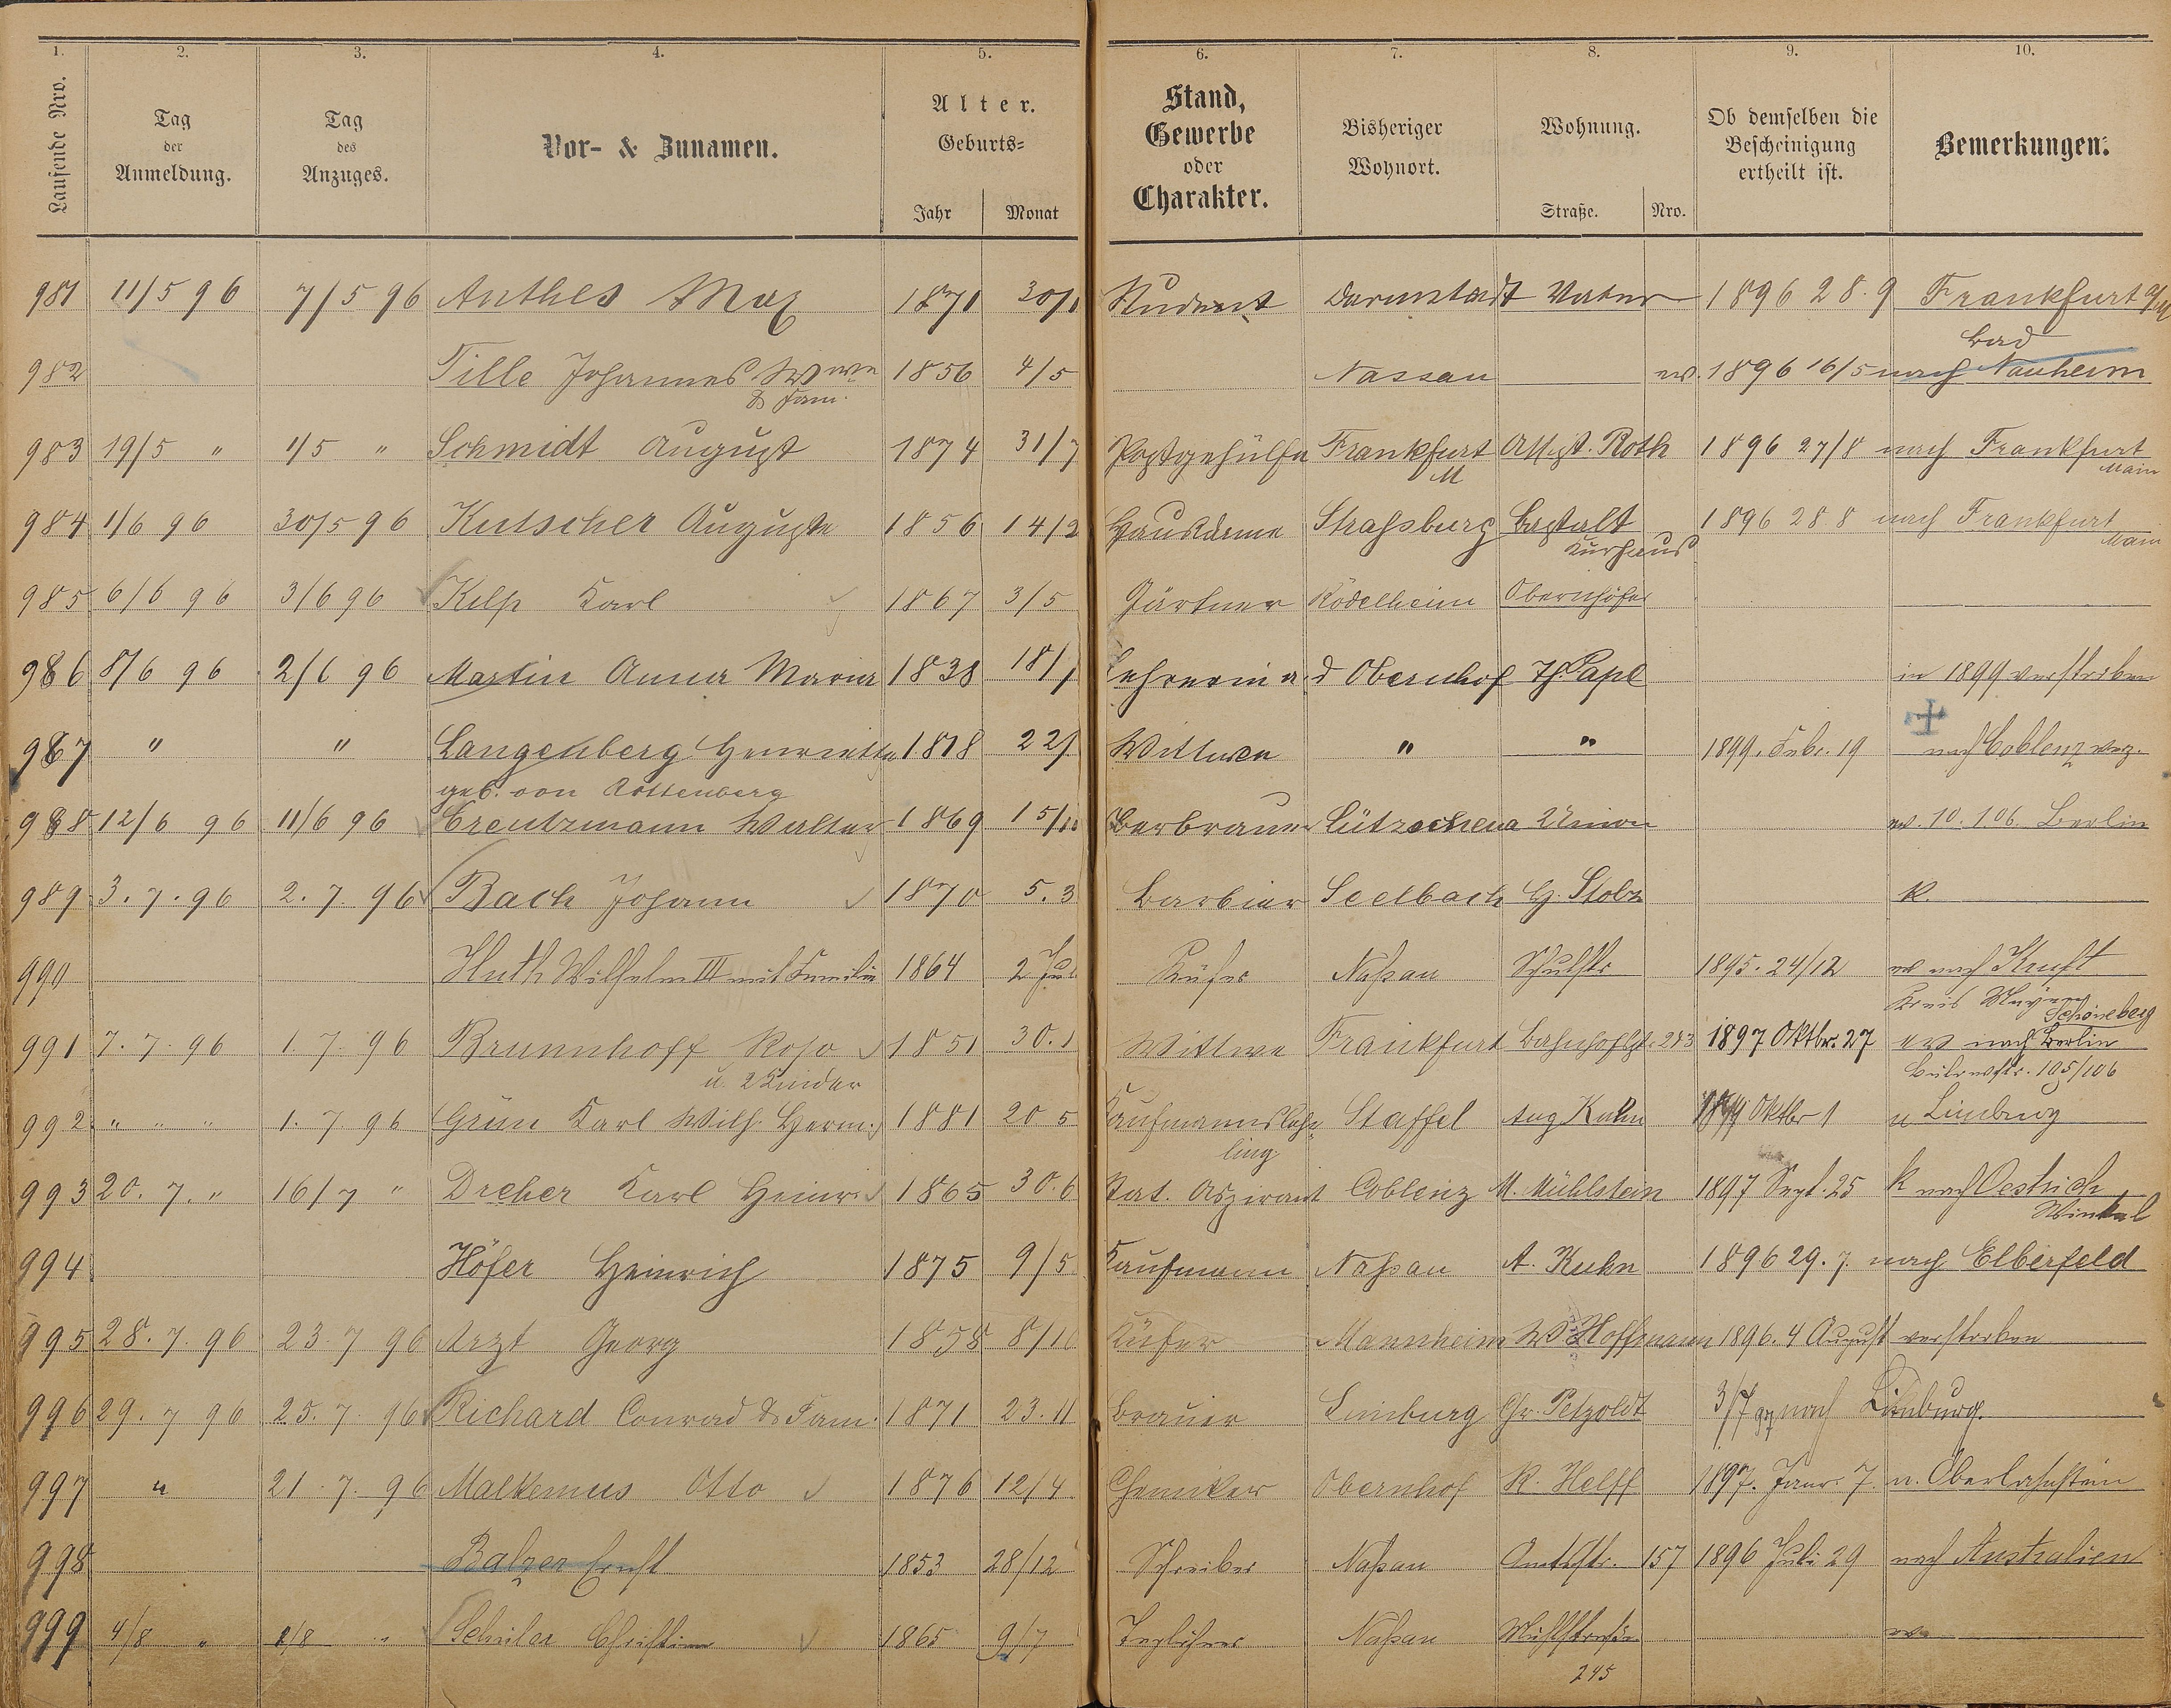 1. 2. 3. 4. 5. 6. 7. 8. 9. 10.
Laufende Nro. Tag der Anmeldung. Tag des Anzuges. Vor- & Zunamen. Alter. Geburts= Jahr Monat Stand, Gewerbe oder Charakter. Bisheriger Wohnort. Wohnung. Straße. Nro. Ob demselben die Bescheinigung ertheilt ist. Bemerkungen.
981 11/5 96 7/5 96 Anthes Max 1871 30/1 Student Darmstadt Vater 1896 28.9 Frankfurt a/M
Bad
982 Tille Johannes Wwe 1856 4/5 Nassau ev. 1896 16/5 nach Nauheim
& Fam.
983 19/5 " 1/5 " Schmidt August 1874 31/7 Postgehülfe Frankfurt Assist. Roth 1896 27/8 nach Frankfurt
M Main
984 1/6 96 30/5 96 Kutscher Auguste 1856 14/2 Hausdame Straßburg 1896 28 8 nach Frankfurt
Kurhaus Main
985 6/6 96 3/6 96 Kilp Karl 1867 3/5 Gärtner Rödelheim Obernhöfer
986 8/6 96 2/6 96 Martin Anna Maria 1838 18/ Lehrerin a d Obernhof Th. Pape in 1899 verstorben
987 " " Langenberg Henriette 1818 22/ Wittwe " " 1899. Febr. 19 nach Coblenz verz.
geb. von Rottenberg
988 12/6 96 11/6 96 Creutzmann Walter 1869 15/10 Bierbrauer Lützschena Union ev. 10.1.06. Berlin
989 3.7.96 2.7.96 Bach Johann 1870 5.3 Barbier Seelbach G. Stolz k.
990 Huth Wilhelm III mit Familie 1864 2 Jul Küfer Naßau Schulstr. 1895. 24/12 ev nach Kruft
Kreis Mayen
Schöneberg
991 7.7.96 1.7.96 Brunnhoff Rosa 1851 30.1 Wittwe Frankfurt Bahnhofst. 283 1897 Oktbr. 27 ev nach Berlin
u. 2 Kinder Bülowstr. 105/106
992 " " " 1.7.96 Grün Karl Wilh. Herm. 1881 20 5 Kaufmannslehr- Staffel Aug Kuhn Oktbr 1 n Limburg
ling
993 20.7. " 16/7 " Dreher Karl Heinr. 1865 30.6 Stat. Aspirant Coblenz M. Mühlstein 1897 Sept. 25 k nach Oestrich
Winkel
994 Höfer Heinrich 1875 9/5 Kaufmann Naßau A. Kuhn 1896 29.7. nach Elberfeld
995 28.7.96 23.7 96 Arzt Georg 1858 8/10 Küfer Mannheim W Hoffmann 1896. 4 August verstorben
996 29.7 96 25.7.96 Richard Conrad & Fam. 1871 23.11 Brauer Limburg Chr. Petzoldt 3/7 97 nach Limburg.
997 " 21.7.96 Malkemus Otto 1876 12/4 Chemiker Obernhof K. Helff 1897. Janr. 7. n. Oberlahnstein
998 Balzer Ernst 1853 28/12 Schreiber Naßau Amtsstr. 157 1896 Juli 29 nach Australien
999 4/8 " 1/8 " Schüler Christian 1865 9/7 Taglöhner Naßau Mühlstraße ev
245